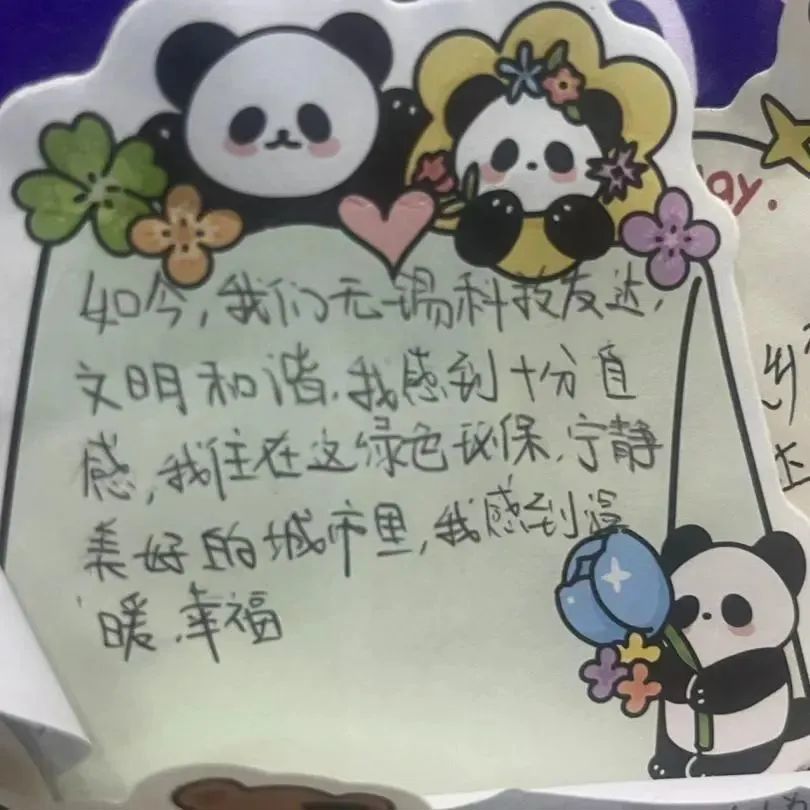 如今，我们无锡科技发达，
文明和谐.我感到十分自
感，我住在这绿色环保、宁静
美好的城市里，我感到温
暖、幸福
ay.